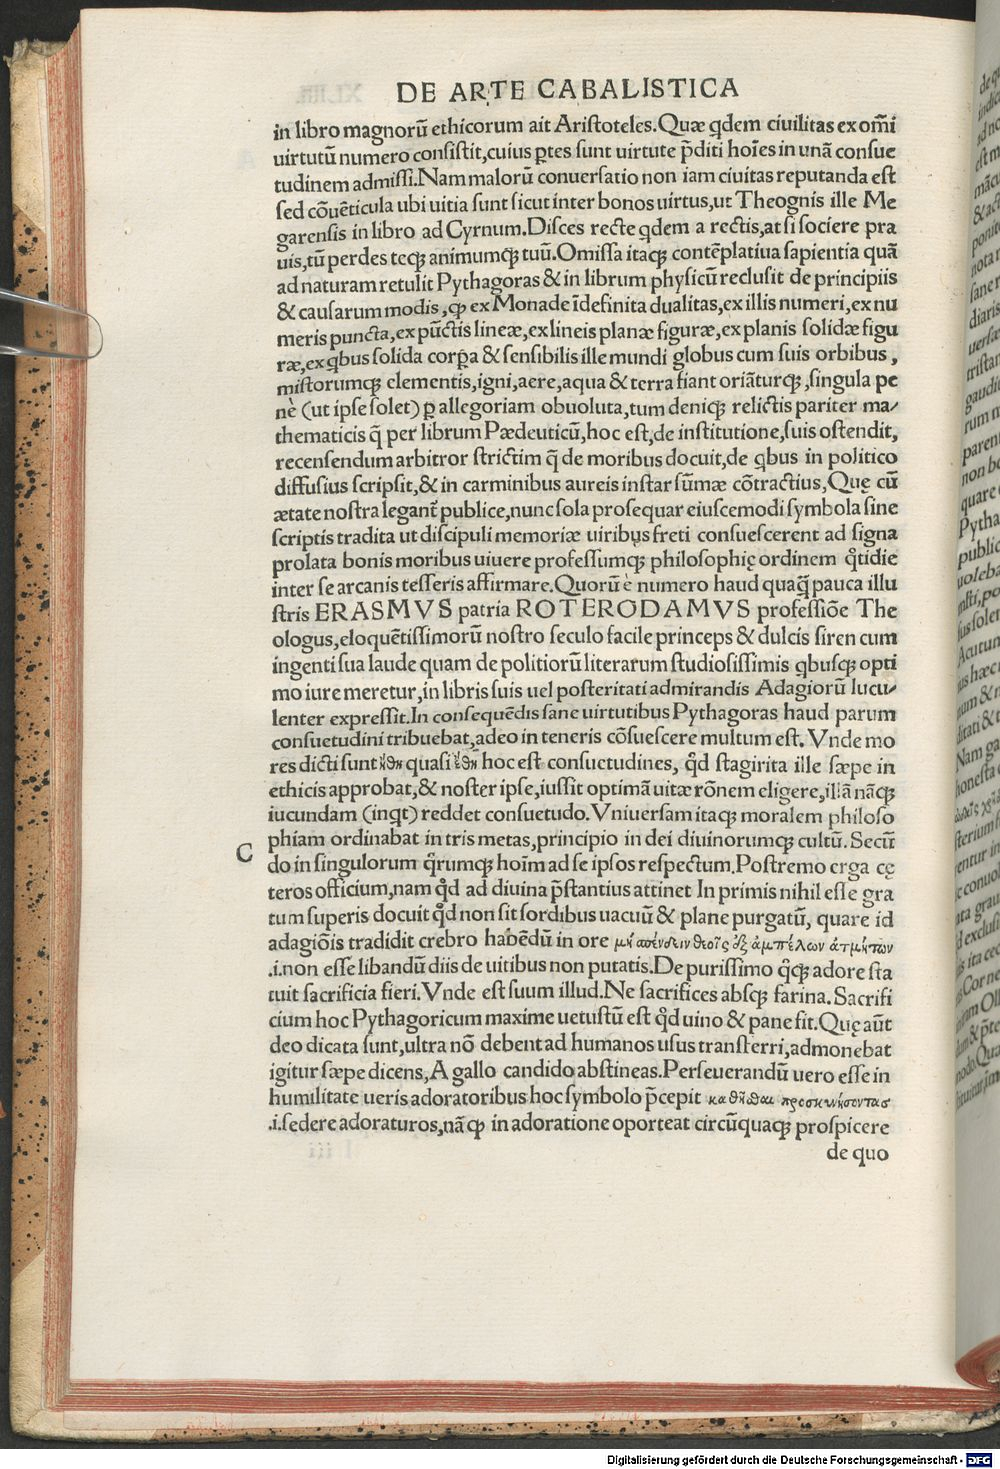 DE ARTE CABALISTICA
in libro magnorũ ethicorum ait Aristoteles. Quæ qdem ciuilitas ex om̃i
uirtutũ numero consistit, cuius ꝑtes sunt uirtute p̃diti hoĩes in unã consue
tudinem admissi. Nam malorũ conuersatio non iam ciuitas reputanda est
sed cõuẽticula ubi uitia sunt sicut inter bonos uirtus, ut Theognis ille Me
garensis in libro ad Cyrnum. Disces recte qdem a rectis, at si sociere pra
uis, tũ perdes teqꝫ animumqꝫ tuũ. Omissa itaqꝫ contẽplatiua sapientia quã
ad naturam retulit Pythagoras & in librum physicũ reclusit de principiis
& causarum modis, ꝙ ex Monade ĩdefinita dualitas, ex illis numeri, ex nu
meris puncta, ex pũctis lineæ, ex lineis planæ figuræ, ex planis solidæ figu
ræ, ex qbus solida corꝑa & sensibilis ille mundi globus cum suis orbibus,
mistorumqꝫ elementis, igni, aere, aqua & terra fiant oriãturqꝫ, singula pe
nè (ut ipse solet) ꝑ allegoriam obuoluta, tum deniqꝫ relictis pariter ma/
thematicis q̃ per librum Pædeuticũ, hoc est, de institutione, suis ostendit,
recensendum arbitror strictim q̃ de moribus docuit, de qbus in politico
diffusius scripsit, & in carminibus aureis instar sũmæ cõtractius, Quę cũ
ætate nostra legant̃ publice, nunc sola prosequar eiuscemodi symbola sine
scriptis tradita ut discipuli memoriæ uiribus freti consuescerent ad signa
prolata bonis moribus uiuere professumqꝫ philosophię ordinem q̃tidie
inter se arcanis tesseris affirmare. Quorũ ẽ numero haud quaq̃ pauca illu
stris ERASMVS patria ROTERODAMVS professiõe The
ologus, eloquẽtissimorũ nostro seculo facile princeps & dulcis siren cum
ingenti sua laude quam de politiorũ literarum studiosissimis qbusqꝫ opti
mo iure meretur, in libris suis uel posteritati admirandis Adagiorũ lucu/
lenter expressit. In consequẽdis sane uirtutibus Pythagoras haud parum
consuetudini tribuebat, adeo in teneris cõsuescere multum est. Vnde mo
res dicti sunt ἤθη quasi ἔθη hoc est consuetudines, qd stagirita ille sæpe in
ethicis approbat, & noster ipse, iussit optimã uitæ rõnem eligere, illã nãqꝫ
iucundam (inqt) reddet consuetudo. Vniuersam itaqꝫ moralem philoso
phiam ordinabat in tris metas, principio in dei diuinorumqꝫ cultũ. Secũ
C
do in singulorum q̃rumqꝫ hoĩm ad se ipsos respectum. Postremo erga cę
teros officium, nam qd ad diuina p̃stantius attinet In primis nihil esse gra
tum superis docuit qd non sit sordibus uacuũ & plane purgatũ, quare id
adagiõis tradidit crebro habẽdũ in ore μὴ σπένδειν θεοῖς ἐξ ἀμπέλων ἀτμήτων
.i. non esse libandũ diis de uitibus non putatis. De purissimo qꝙ adore sta
tuit sacrificia fieri. Vnde est suum illud. Ne sacrifices absqꝫ farina. Sacrifi
cium hoc Pythagoricum maxime uetustũ est qd uino & pane fit. Quę aũt
deo dicata sunt, ultra nõ debent ad humanos usus transferri, admonebat
igitur sæpe dicens, A gallo candido abstineas. Perseuerandũ uero esse in
humilitate ueris adoratoribus hoc symbolo p̃cepit καθῆσθαι προσκυνήσοντας
.i. sedere adoraturos, nã ꝙ in adoratione oporteat circũquaqꝫ prospicere
de quo
Digitalisierung gefördert durch die Deutsche Forschungsgemeinschaft - DFG